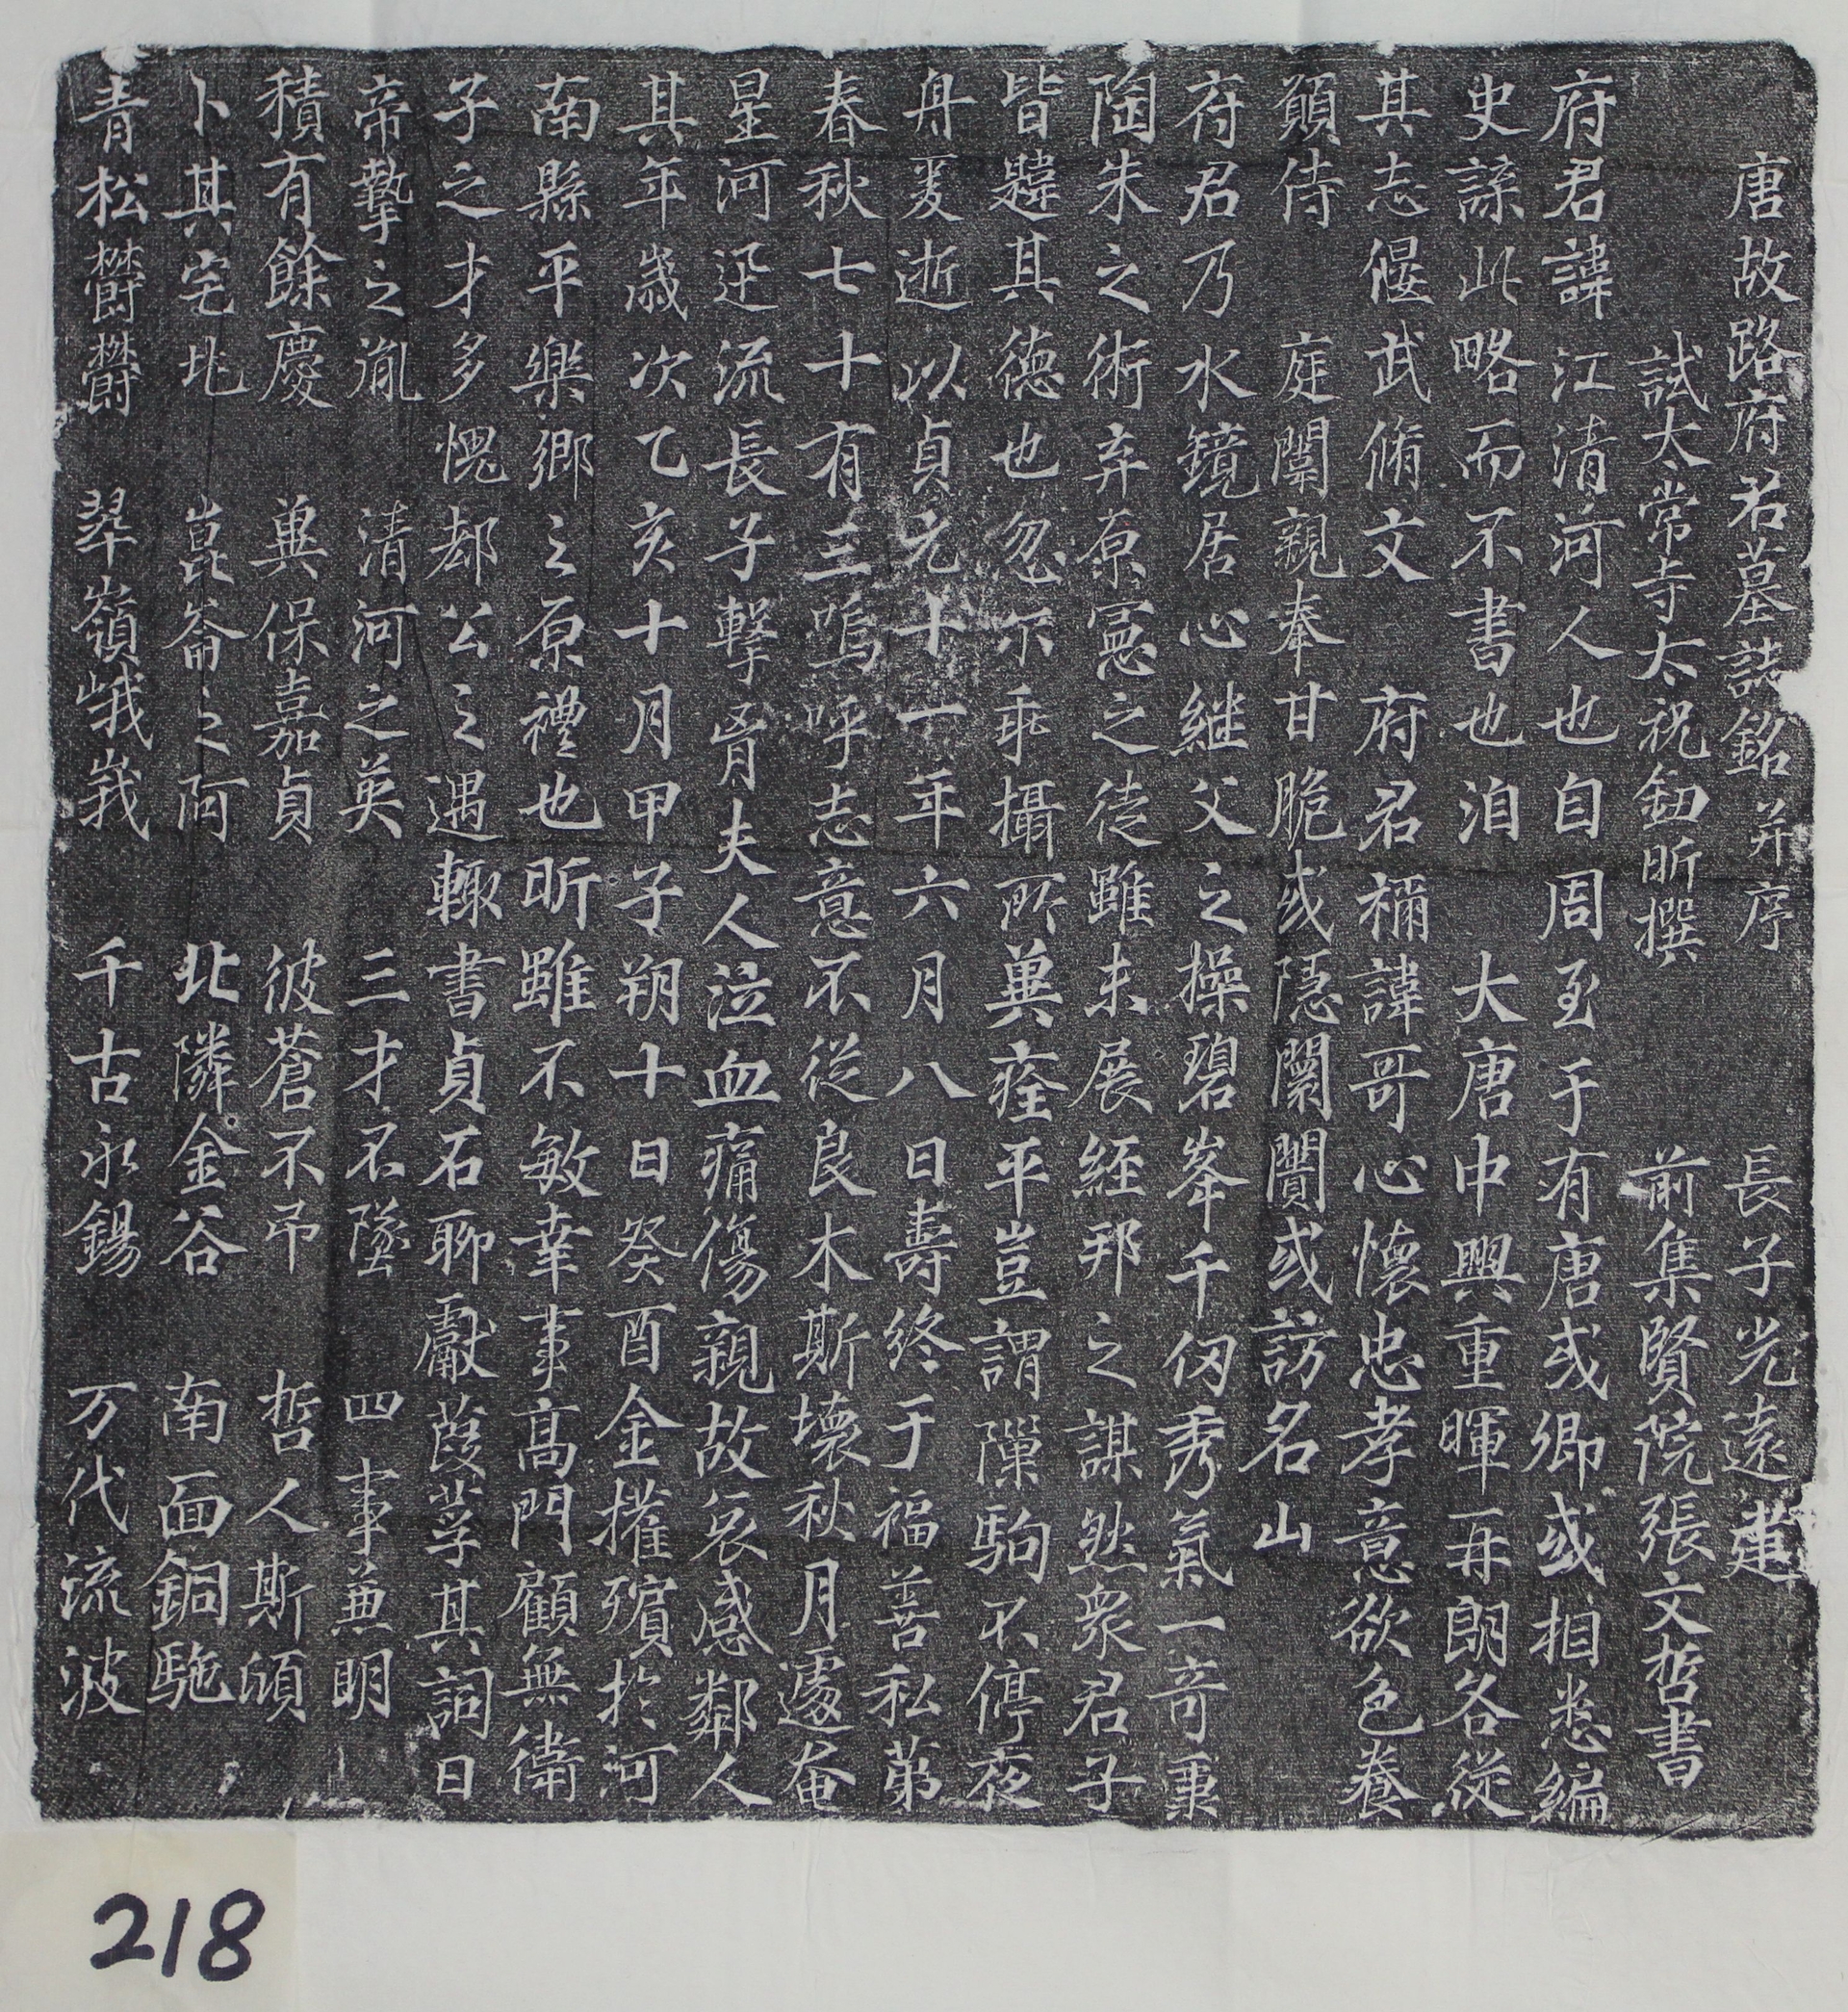 唐故路府君墓誌銘并序 長子光遠建
試太常寺太祝鈕昕撰 前集賢院張文哲書
府君諱江清河人也自周至于有唐或卿或相悉編
史諜此略而不書也洎 大唐中興重暉再朗各從
其志偃武脩文 府君禰諱哥心懷忠孝意欲色養
願侍 庭闈親奉甘脆或隱闤闠或訪名山
府君乃水鏡居心継父之操碧峯千仞秀氣一奇秉
陶朱之術弃原憲之徒雖未展經邦之謀然衆君子
皆韙其德也忽尒乖攝所兾痊平豈謂隟駒不停夜
舟叐逝以貞元十一年六月八日壽終于福善私苐
春秋七十有三嗚呼志意不從良木斯壞秋月遽奄
星河迅流長子擊胷夫人泣血痛傷親故哀感鄰人
其年歳次乙亥十月甲子朔十日癸酉金攉殯扵河
南縣平樂鄉之原禮也昕雖不敏幸事高門顧無衛
子之才多愧郄公之遇輙書貞石聊獻葭莩其詞曰
帝摯之胤 清河之英 三才不墜 四事兼明
積有餘慶 兾保嘉貞 彼蒼不弔 哲人斯傾
卜其宅地 崑崙之阿 北隣金谷 南面銅駞
青松欝欝 翠嶺峨峩 千古永錫 万代流波
218